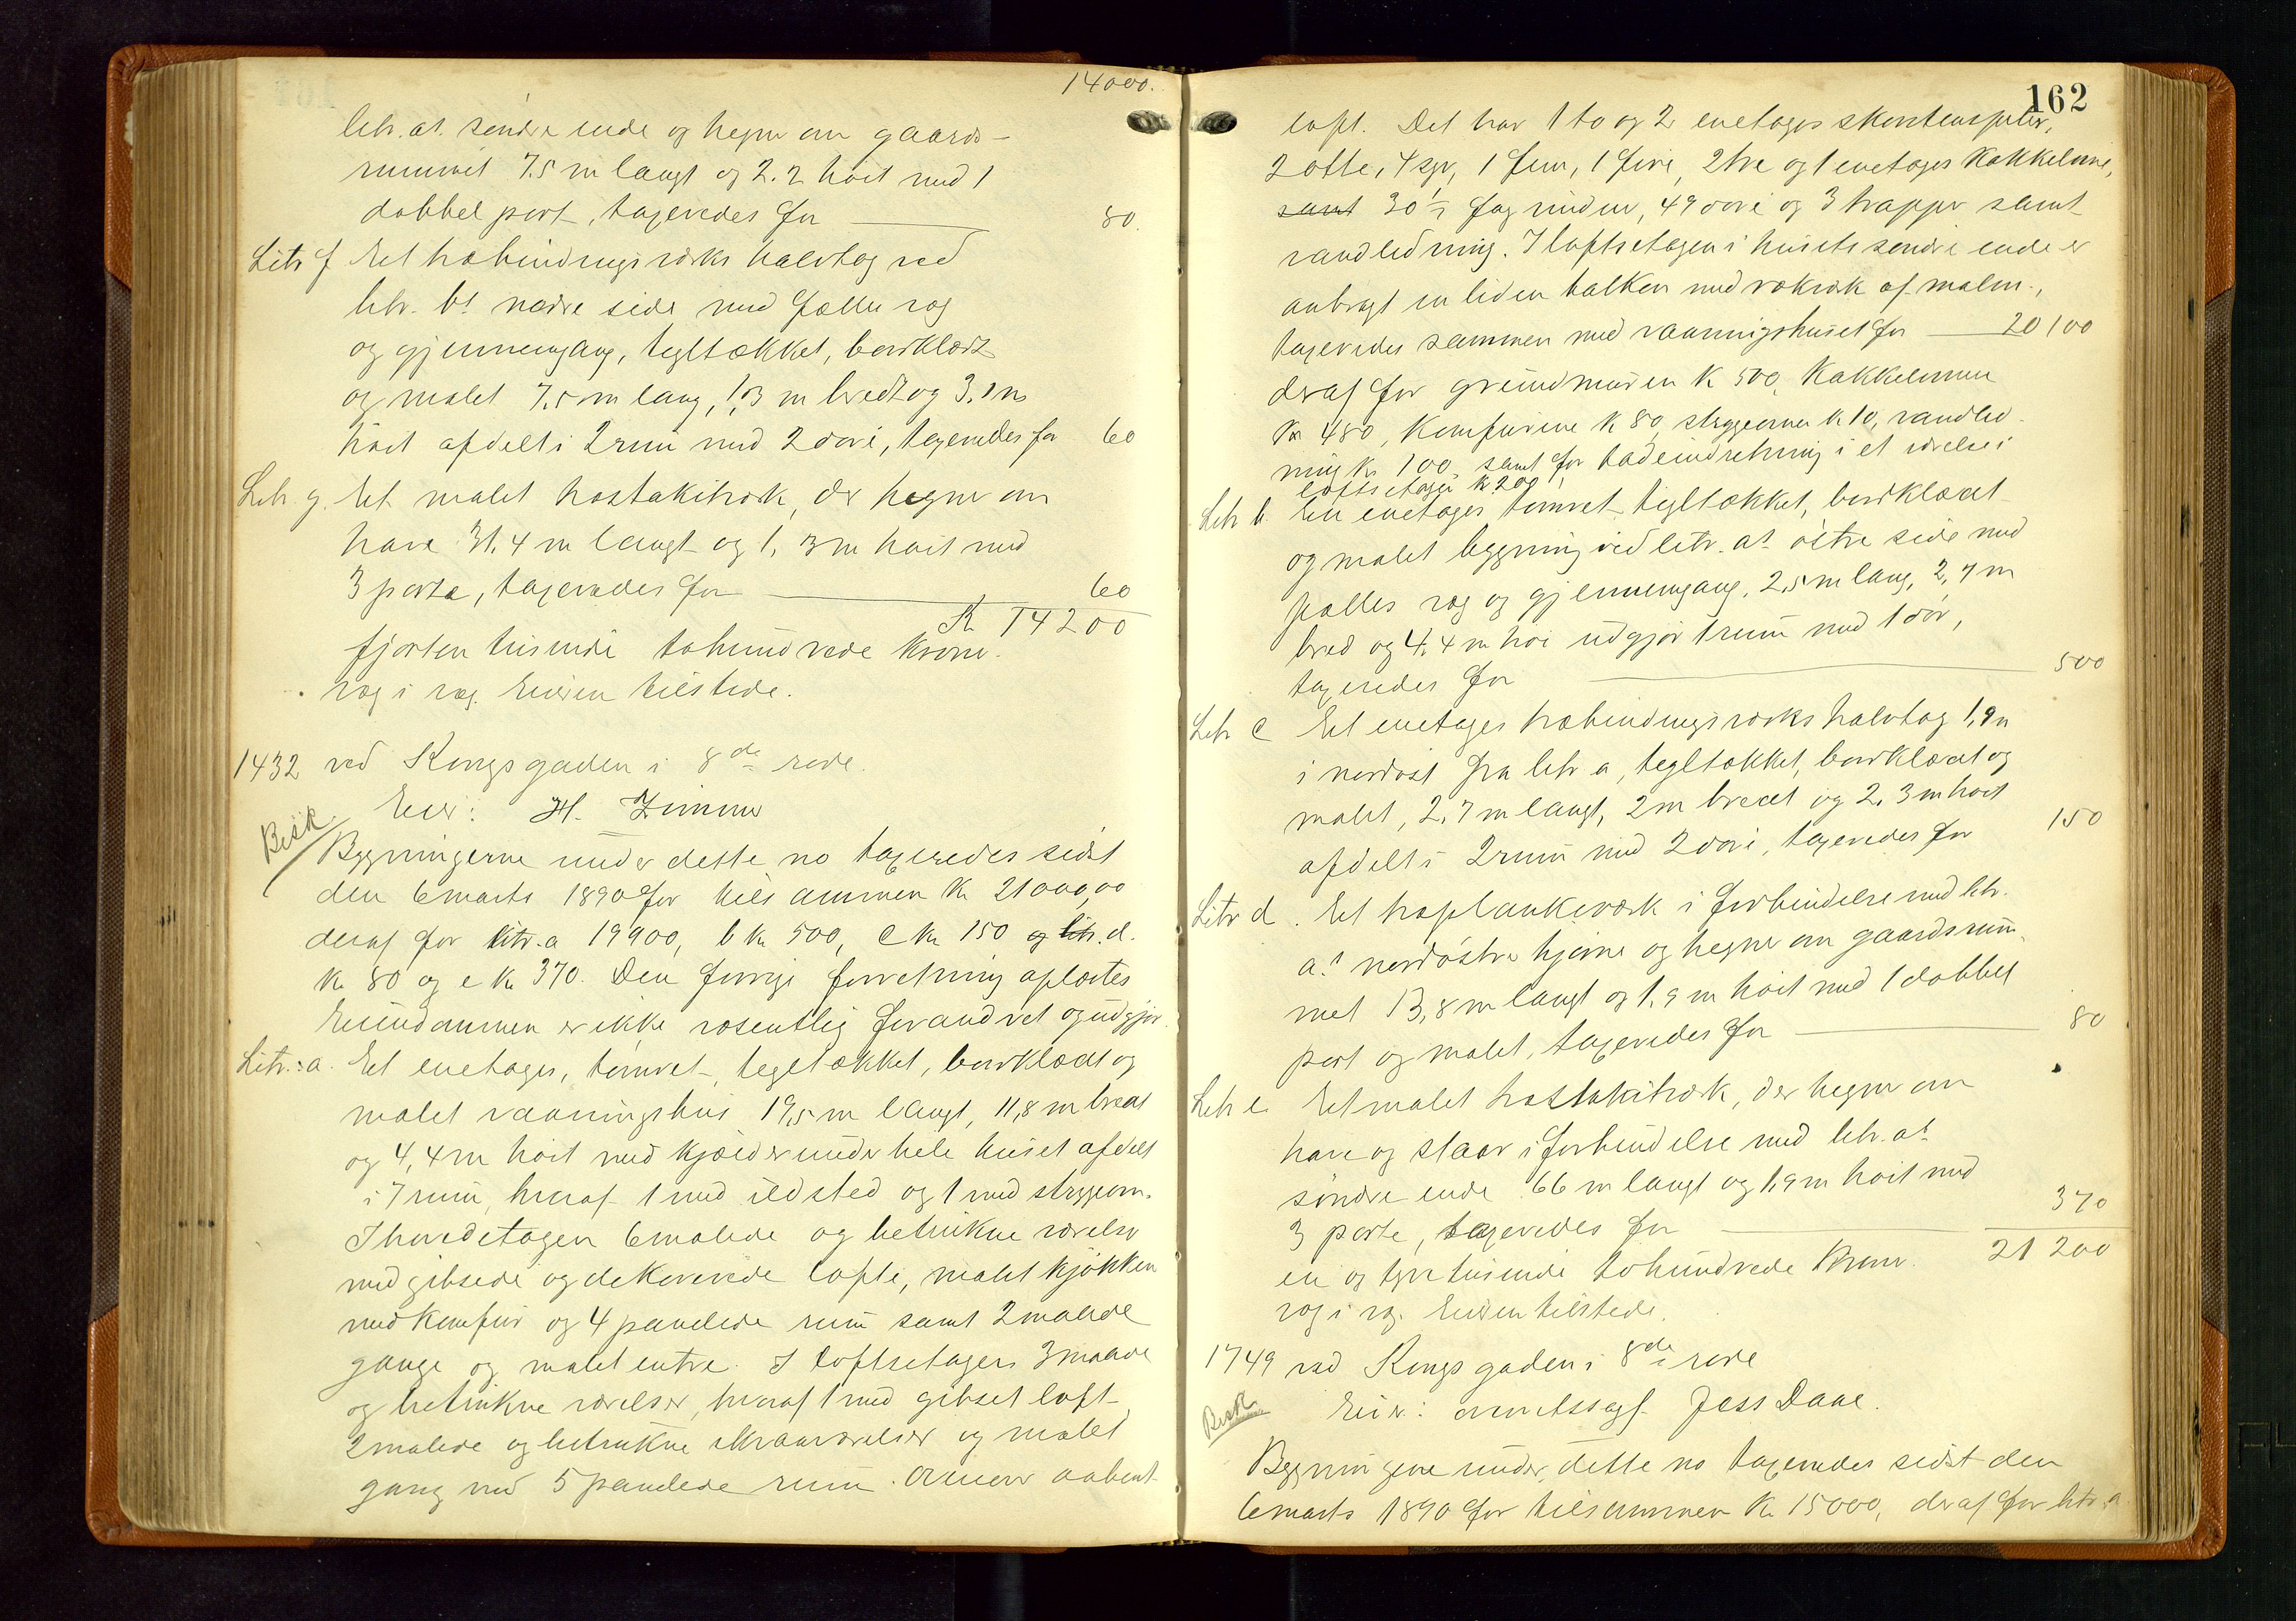 14000.
litr. a's søndre ende og hegner om gaards-
rummet 7.5 m langt og 2.2 høit med 1
dobbel port, taxeredes for 80.
Litr f Et træbindingsværks halvtag ved
litr. b's nedre side med fælles væg
og gjennemgang, tegltækket, bordklædt
og malet 7,5 m lang, 1,3 m bredt og 3.1 m
høit afdelt i 2 rum med 2 døre, taxeredes for 60
Litr. g. Et malet træstakitværk, der hegner om
have 31,4 m langt og 1,3 m høit med
3 porte, taxeredes for 60
Kr 14200
fjorten tusinde tohundrede kroner.
væg i væg. Eieren tilstede.
1432 ved Kongsgaden i 8de rode.
Besk.
Eier: H. Zimmer
Bygningerne under dette no taxeredes sidst
den 6 marts 1890 for tilsammen Kr 21000,00
deraf for litr. a 19900, b kr 500, c kr 150 og litr. d.
kr 80 og e kr 370. Den forrige forretning oplæstes
Eiendommen er ikke væsentlig forandret og udgjør.
Litr.: a. Et enetages, tømret, tegltækket, bordklædt og
malet vaaningshus 19,5 m langt, 11,8 m bredt
og 4,4 m høit med kjælder under hele huset afdelt
i 7 rum, hvoraf 1 med ildsted og 1 med strygeovn.
I hovedetagen 6 malede og betrukne værelser
med gibsede og dekorerede lofte, malet kjøkken
med komfur og 4 panelede rum samt 2 malede
gange og malet entre. I loftsetagen 3 malede
og betrukne værelser, hvoraf 1 med gibset loft,
2 malede og betrukne skraaværelser og malet
gang med 5 panelede rum. Ovenover aabent
162
loft. Det har 1 to og 2 enetages skorstenspiber,
2 otte, 4 syv, 1 fem, 1 fire, 2 tre og 1 enetages kakkelovne,
samt 30½ fag vinduer, 49 døre og 3 trapper samt
vandledning. I loftsetagen i husets søndre ende er
anbragt en liden balkon med rækværk af malm,
taxeredes sammen med vaaningshuset for 20100
deraf for grundmuren K 500, Kakkelovnene
Kr 480, Komfurene k 80, strygeovnen k 10, vandled-
ning kr 100, samt for badeindretning i et værelse i
loftsetagen kr 200
Litr b. En enetages tømret tegltækket, bordklædt
og malet bygning ved litr. a's østre side med
fælles væg og gjennemgang, 2,5 m lang, 2,7 m
bred og 4.4 m høi udgjør 1 rum med 1 dør,
taxeredes for 500
Litr c Et enetages træbindingsværks halvtag 1,9 m
i nordøst fra litr a, tegltækket, bordklædt og
malet, 2,7 m langt, 2 m bredt og 2.3 m høit
afdelt i 2 rum med 2 døre, taxeredes for 150
Litr d. Et træplankeværk i forbindelse med litr.
a's nordøstre hjørne og hegner om gaardsrum-
met 13,8 m langt og 1,9 m høit med 1 dobbel
port og malet, taxeredes for 80
Litr e. Et malet træstakitværk, der hegner om
have og staar i forbindelse med litr. a's
søndre ende 66 m langt og 1,9 m høit med
3 porte, taxeredes for 370
en og tyve tusinde tohundrede kroner. 21200
væg i væg. Eieren tilstede.
1749 ved Kongsgaden i 8de rode
Besk.
Eier: overretssagf. Jess Daae.
Bygningerne under dette no taxeredes sidst den
6 marts 1890 for tilsammen Kr 15000, deraf for litr. a